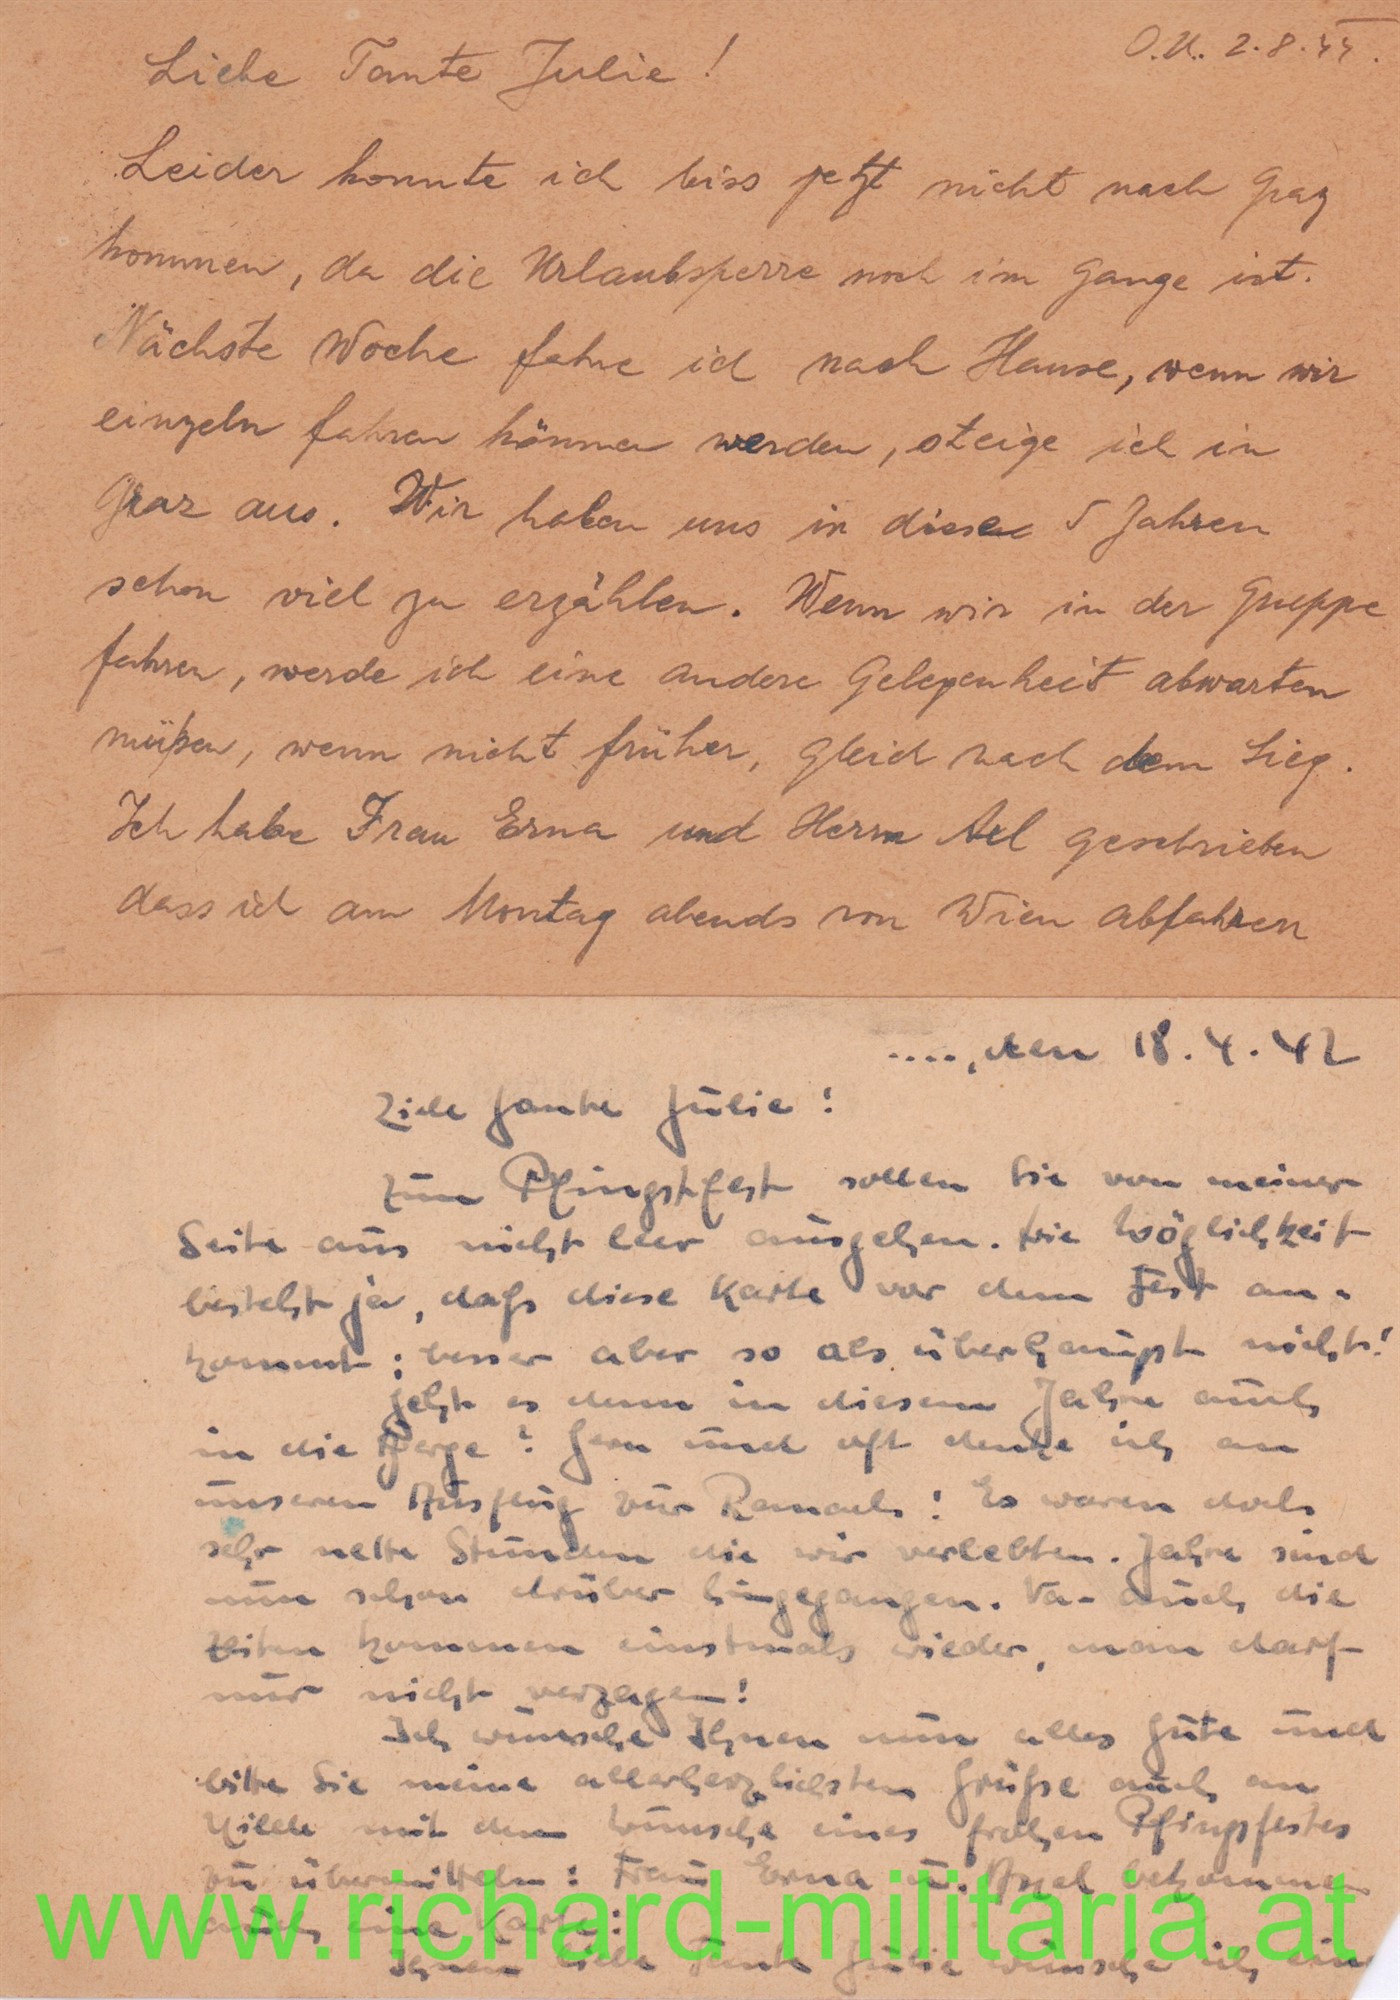 O.U. 2.8.44.
Liebe Tante Julie!
Leider konnte ich biss jetzt nicht nach Graz
kommen, da die Urlaubsperre noch im Gange ist.
Nächste Woche fahre ich nach Hause, wenn wir
einzeln fahren können werden, steige ich in
Graz aus. Wir haben uns in diesen 5 Jahren
schon viel zu erzählen. Wenn wir in der Gruppe
fahren, werde ich eine andere Gelegenheit abwarten
müßen, wenn nicht früher, gleich nach dem Sieg.
Ich habe Frau Erna und Herrn geschrieben
dass ich am Montag abends von Wien abfahren
...., den 18.4.42
Liebe Tante Julie!
Zum Pfingstfest sollen Sie von meiner
Seite aus nicht leer ausgehen. Die Möglichkeit
besteht ja, daß diese Karte vor dem Fest an-
kommt; besser aber so als überhaupt nicht!
Geht es denn in diesem Jahre auch
in die Berge? Gern und oft denke ich an
unseren Ausflug zur! Es waren doch
sehr nette Stunden die wir verlebten. Jahre sind
nun schon drüber hingegangen. Na- auch die
Zeiten kommen einstmals wieder, man darf
nur nicht verzagen!
Ich wünsche Ihnen nun alles Gute und
bitte Sie meine allerherzlichsten Grüße auch an
Hilde mit dem Wunsche eines frohen Pfingstfestes
zu übermitteln: Frau Erna u. bekommen
auch eine Karte!
Ihnen liebe Tante Julie wünsche ich ein
www.richard-militaria.at